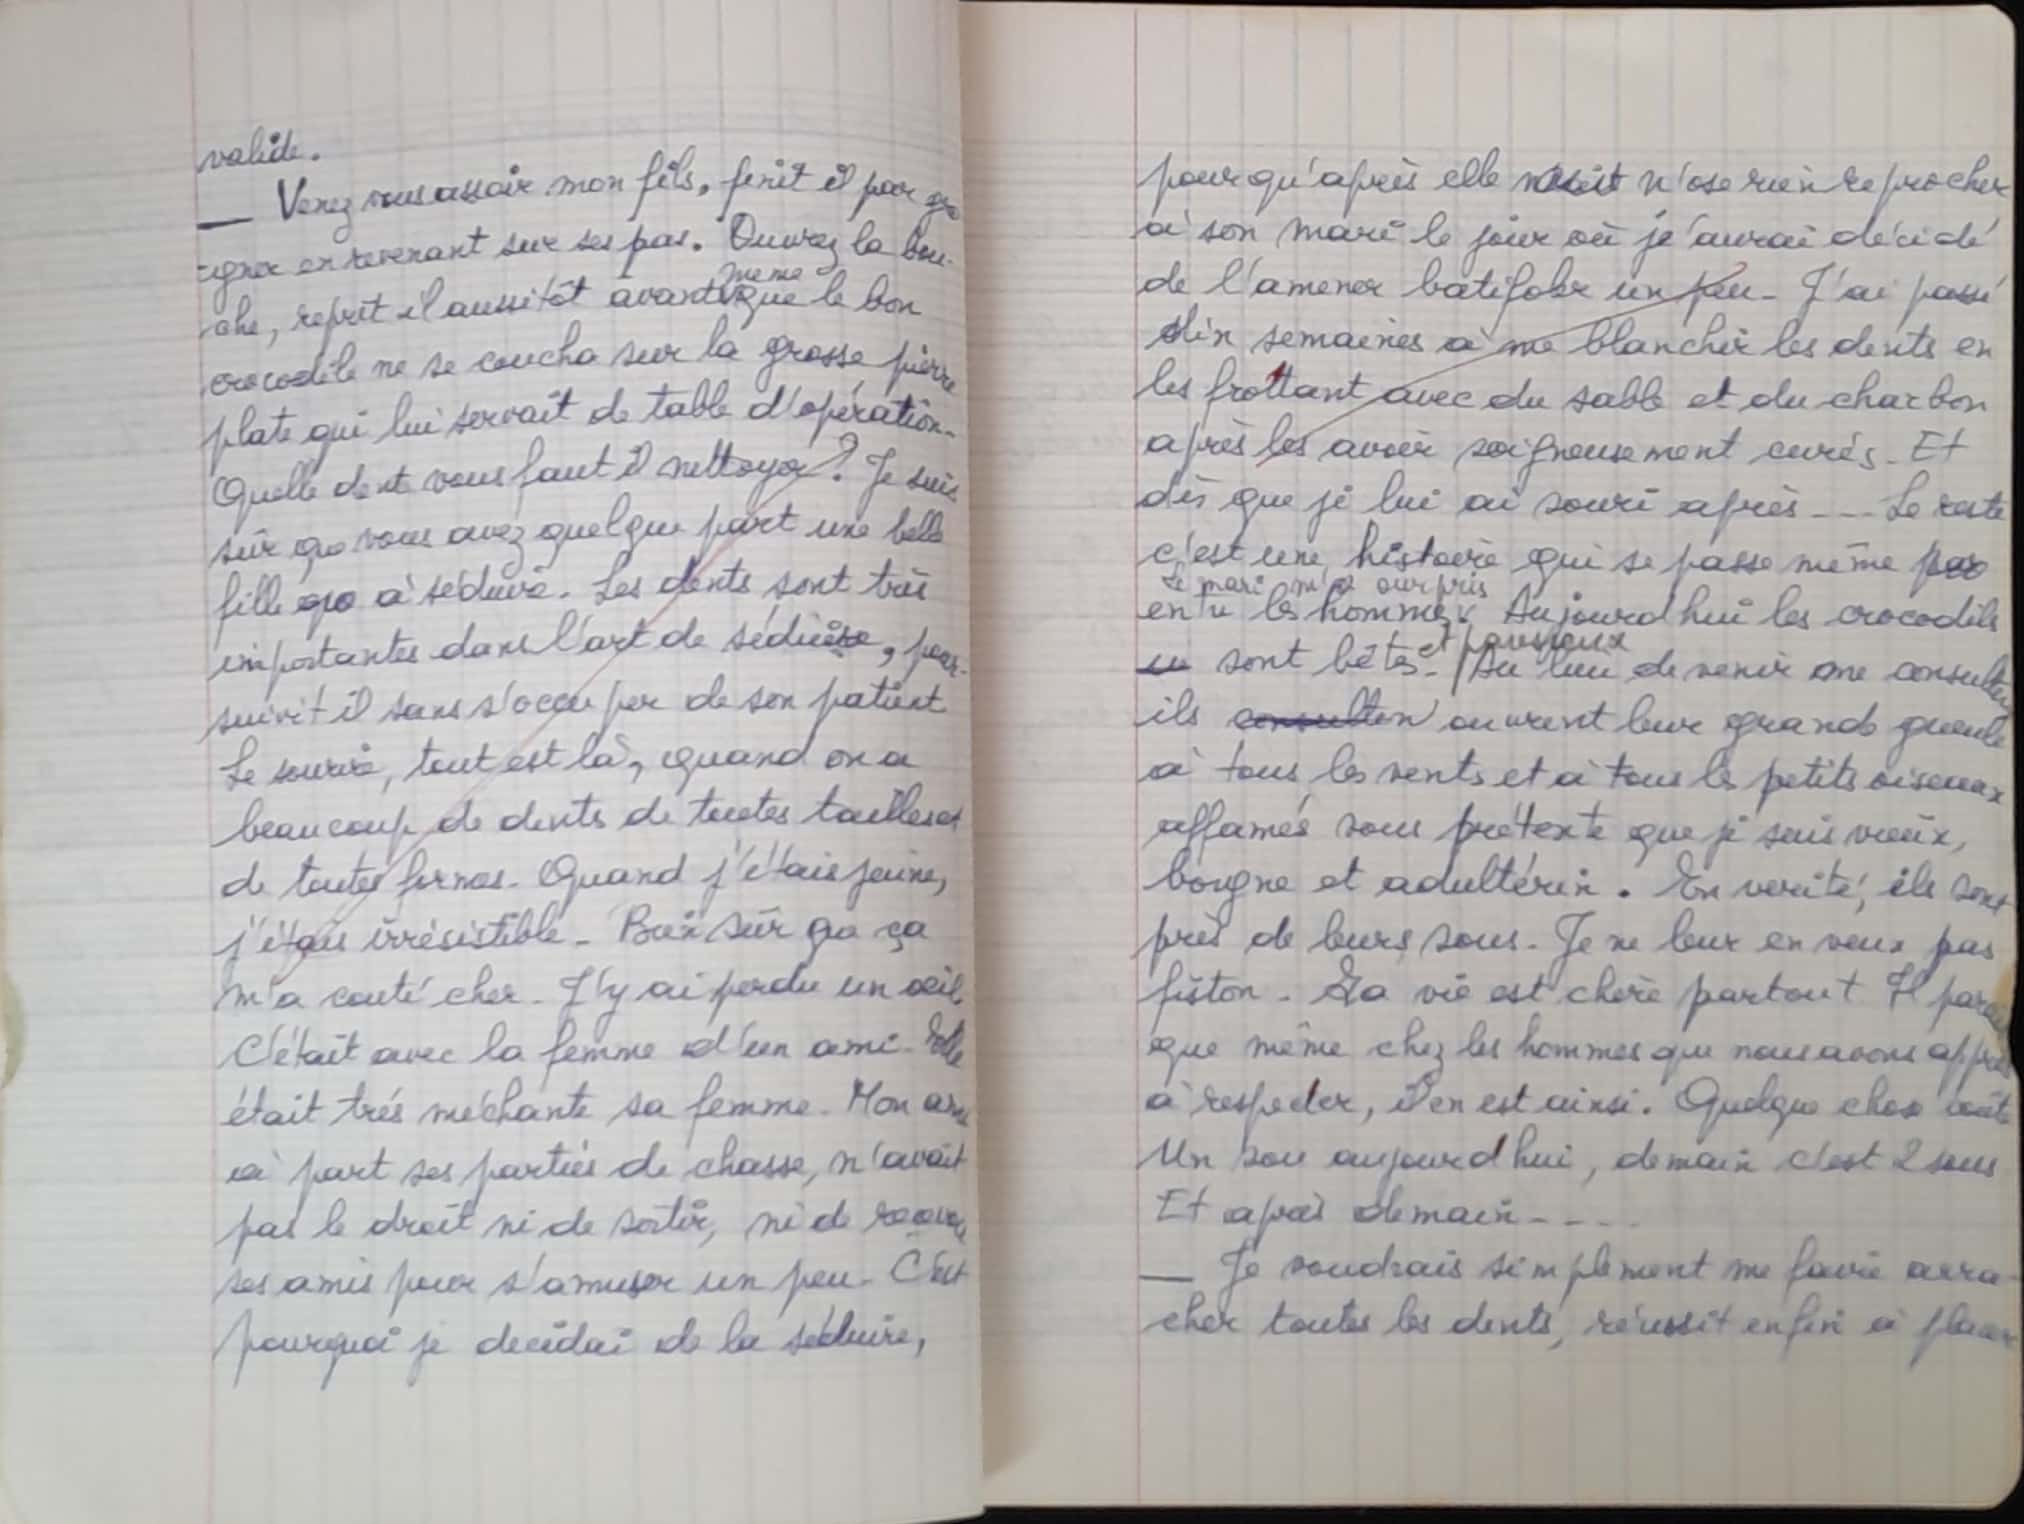 valide.
— Venez vous assoir mon fils, finit il par gro
igner en revenant sur ses pas. Ouvrez la bou-
che, reprit il aussitôt avant même que le bon
crocodile ne se coucha sur la grosse pierre
plate qui lui servait de table d'opération.
Quelle dent vous faut il nettoyer ? Je suis
sûr que vous avez quelque part une belle
fille à séduire. Les dents sont très
importantes dans l'art de séduire, pour-
suivit il sans s'occuper de son patient
Le sourire, tout est là, quand on a
beaucoup de dents de toutes tailles et
de toutes formes. Quand j'étais jeune,
j'étais irrésistible. Bien sûr que ça
m'a couté cher. J'y ai perdu un oeil
C'était avec la femme d'un ami. Elle
était trés méchante sa femme. Mon ami
à part ses parties de chasse, n'avait
pas le droit ni de sortir, ni de recevoir
ses amis pour s'amuser un peu. C'est
pourquoi je decidai de la séduire,
pour qu'après elle n'ose rien reprocher
à son mari le jour où j'aurai décidé
de l'amener batifoler un peu. J'ai passé
dix semaines à me blanchir les dents en
les frottant avec du sable et du charbon
après les avoir soigneusement curés. Et
dès que je lui ai souri après ---- Le reste
c'est une histoire qui se passe même
entre les hommes. Le mari m'a surpris Aujourd'hui les crocodiles
sont bêtes et peureux. Au lieu de venir me consulter
ils ouvrent leur grande gueule
à tous les vents et à tous les petits oiseaux
affamés sous prétexte que je suis vieux,
borgne et adultérin. En verité, ils sont
près de leurs sous. Je ne leur en veux pas
fiston. La vie est chère partout Il parait
que même chez les hommes que nous avons appris
à respecter, il en est ainsi. Quelque chose coûte
Un sou aujourd'hui, demain c'est 2 sous
Et après demain - - - -
— Je voudrais simplement me faire arra-
cher toutes les dents, réussit enfin à placer